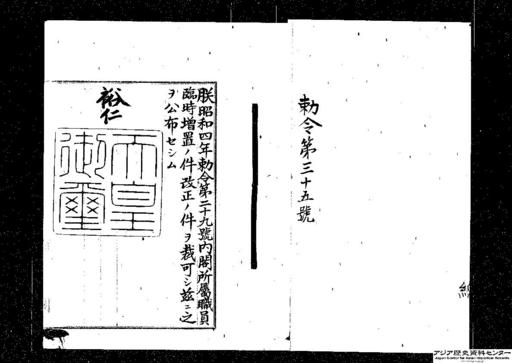 勅令第三十五號
朕昭和四年勅令第二十九號内閣所屬職員
臨時增置ノ件改正ノ件ヲ裁可シ玆ニ之
ヲ公布セシム
裕仁
天皇
御璽
アジア歴史資料センター
Japan Center for Asian Historical Records